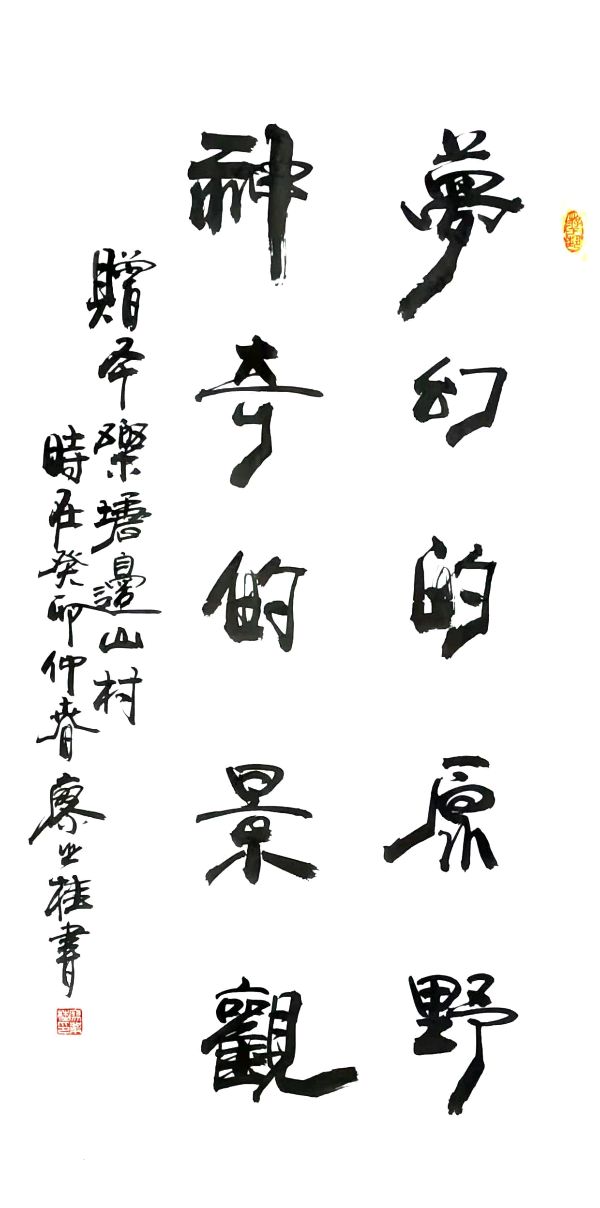 夢幻的原野
神奇的景觀
贈平樂塘邊山村
時在癸卯仲春廖桂書